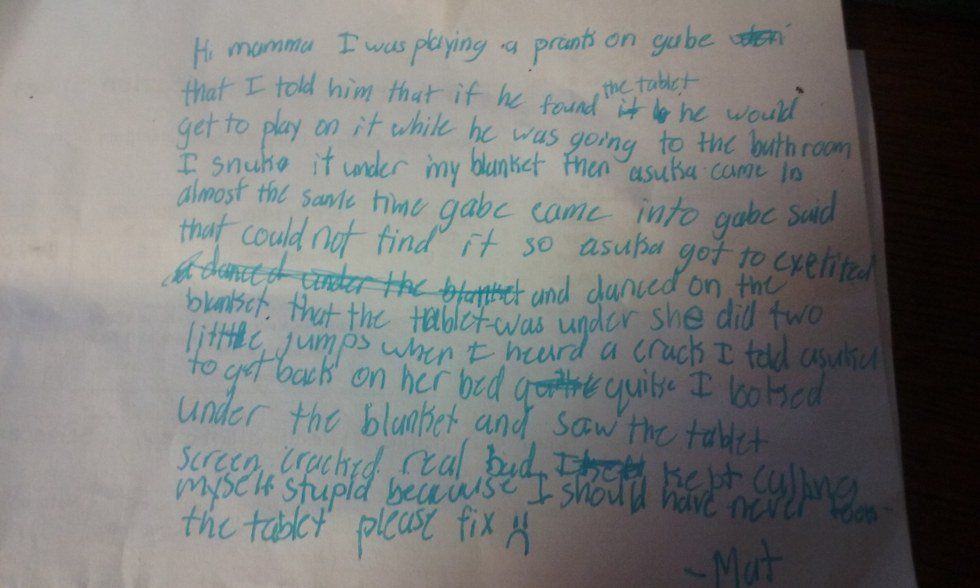 Hi mamma I was playing a prank on gabe
that I told him that if he found the tablet he would
get to play on it while he was going to the buthroom
I snuke it under my blanket then asuka came in
almost the same time gabe came into gabe said
that could not find it so asuka got to exetited
a danced under the blanket and danced on the
blanket that the tablet was under she did two
little jumps when I heard a crack I told asuka
to get back on her bed quike I looked
under the blanket and saw the tablet
screen cracked real bad I kept culling
myself stupid because I should have never
the tablet please fix
-Mat